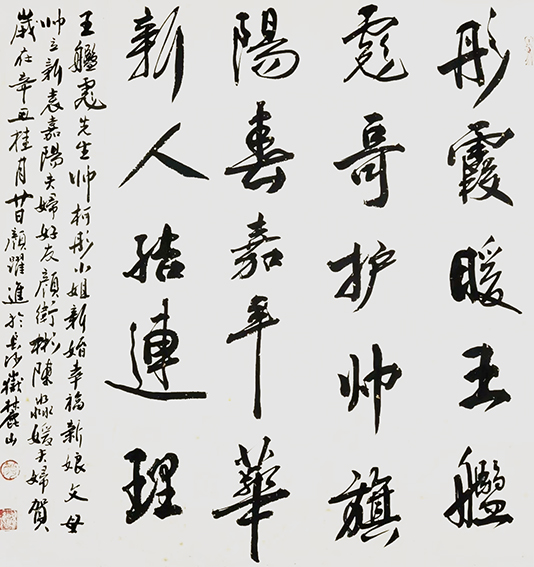 彤霞暖王艦
彪哥护帅旗
陽春嘉年華
新人結連理
王艦彪先生帅柯彤小姐新婚幸福新娘父母
帅立新袁嘉陽夫婦好友顏衛彬陳淼媛夫婦賀
歲在辛丑桂月廿日顏躍進於長沙嶽麓山